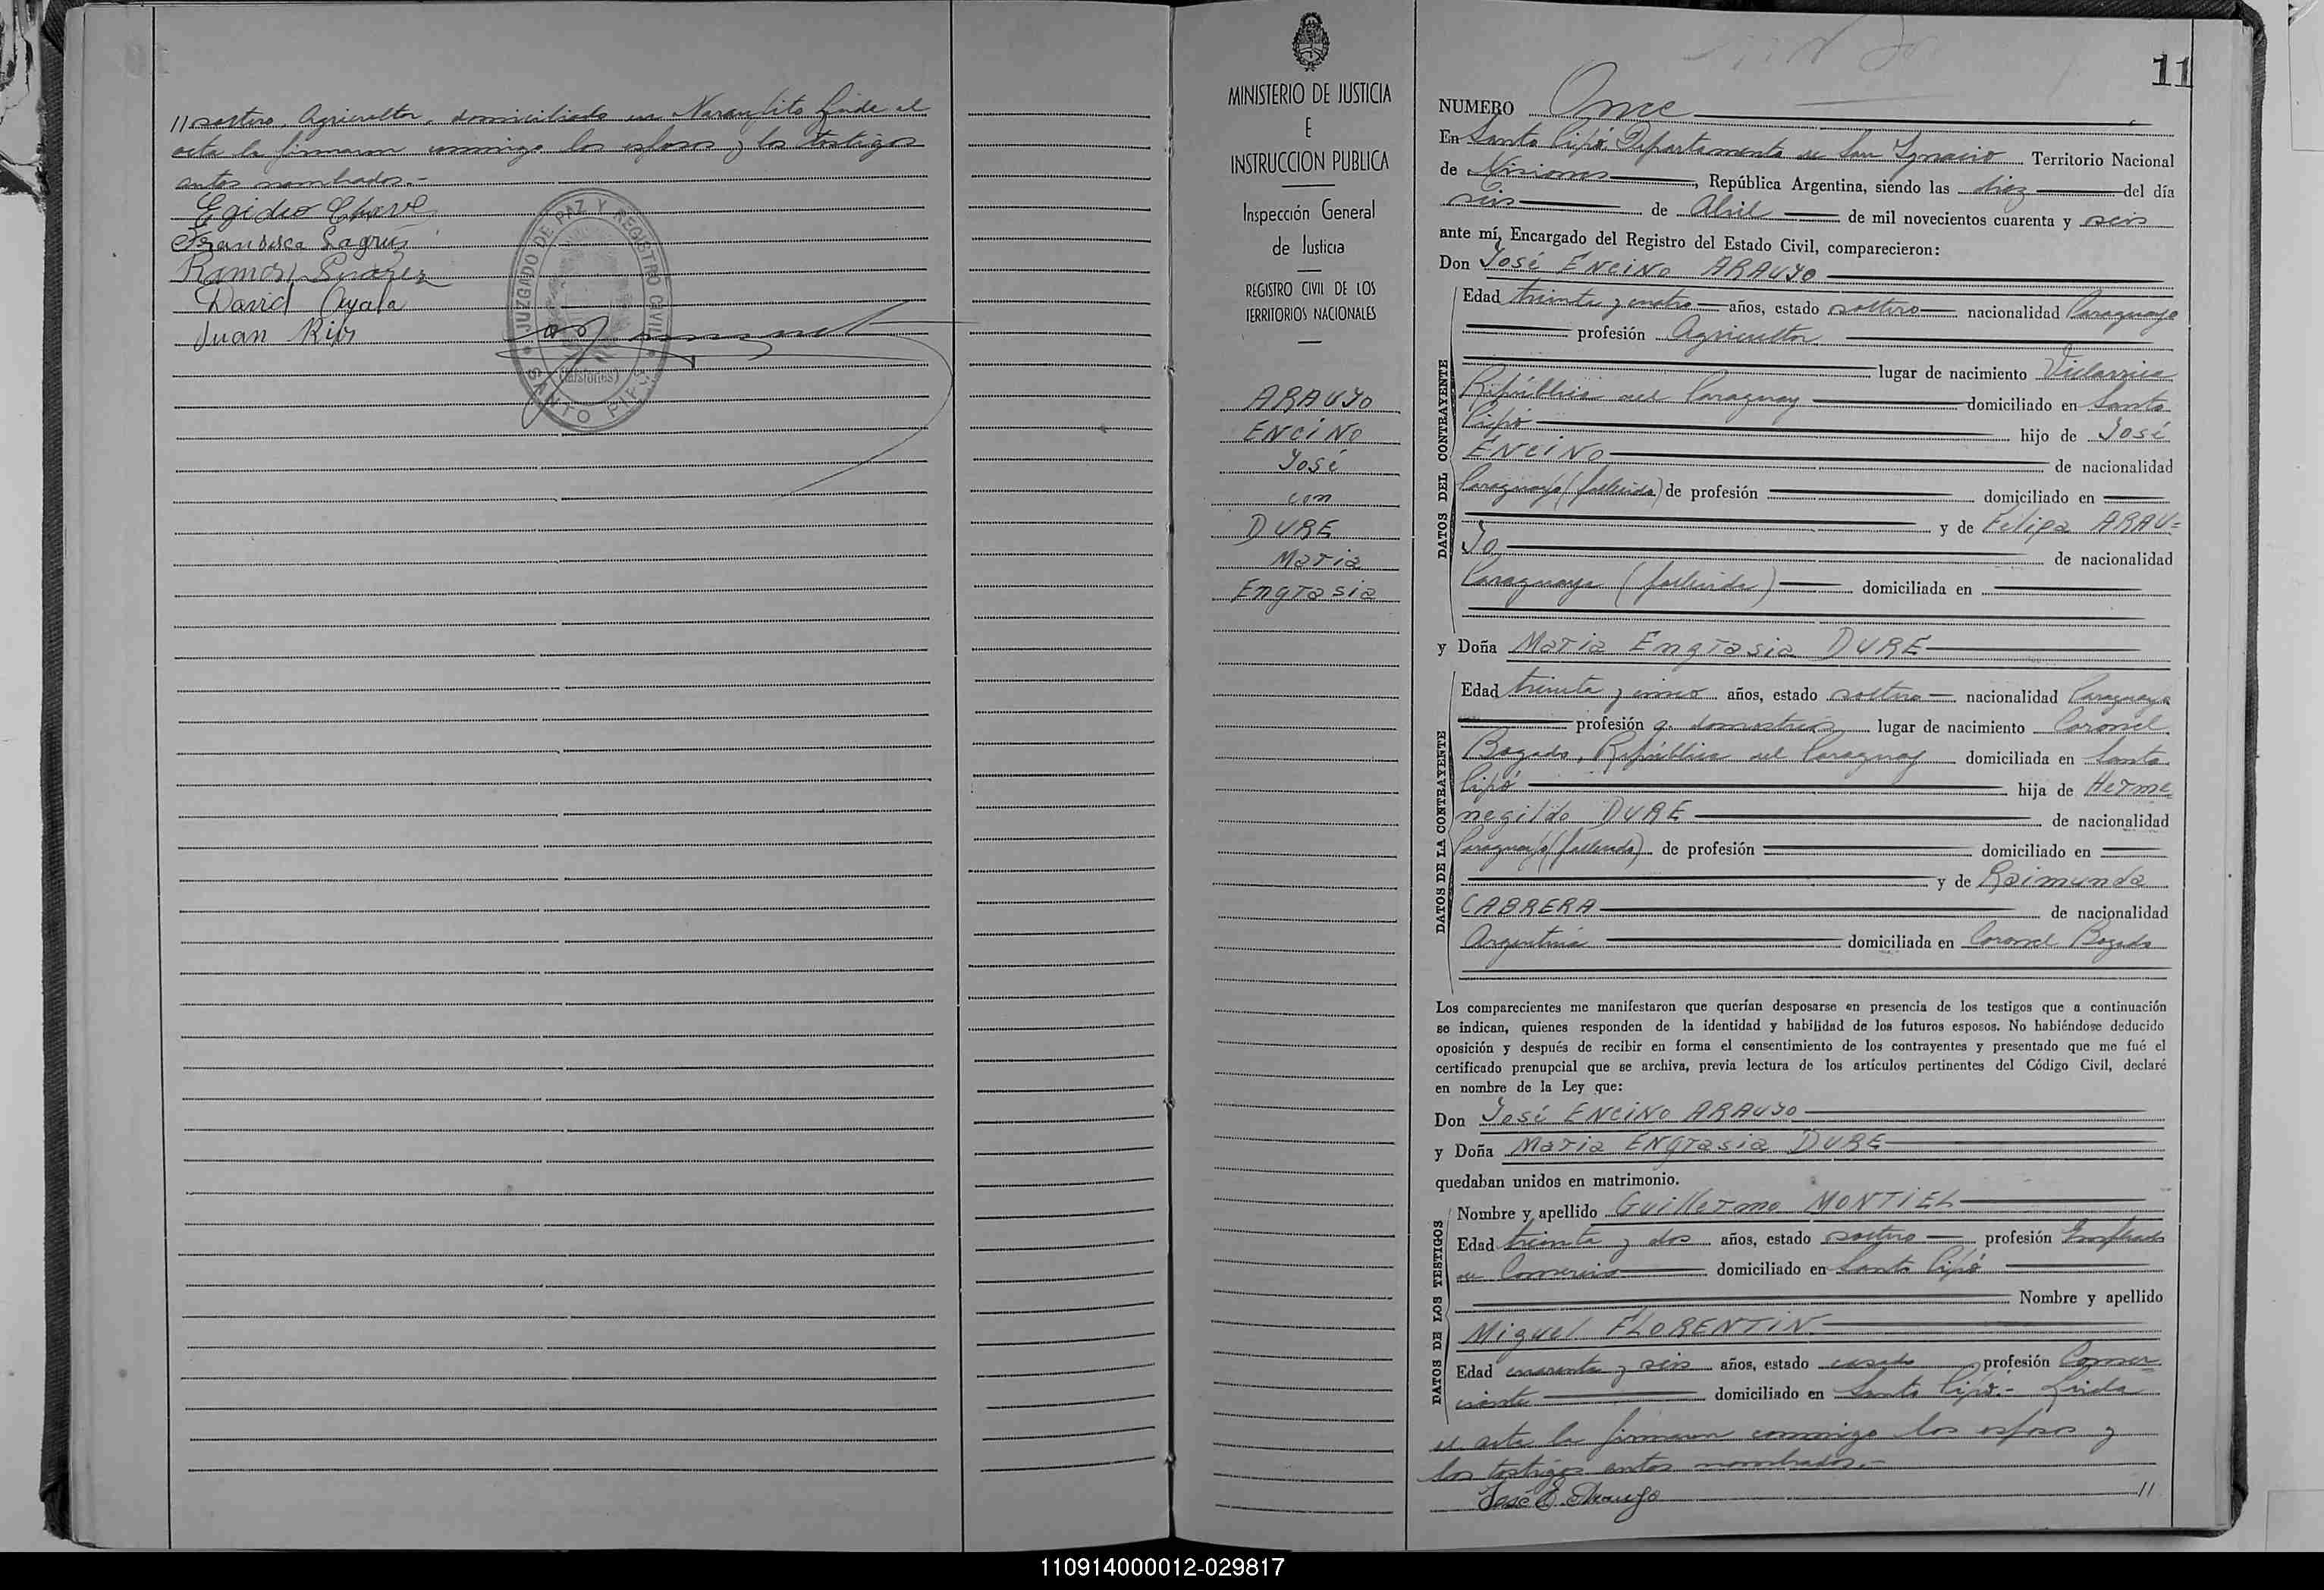 // soltero, Agricultor, domiciliado en Naranjito Leída el
acta la firmaron conmigo los esposos y los testigos
antes nombrados.-
Egidio Chave
Francisca Lagrus
Ramos Suarez
David Ayala
Juan Rios
JUZGADO DE PAZ Y REGISTRO CIVIL
(Misiones)
SANTO PIPÓ
MINISTERIO DE JUSTICIA
E
INSTRUCCION PUBLICA
Inspección General
de Justicia
REGISTRO CIVIL DE LOS
TERRITORIOS NACIONALES
ARAUJO
ENCINO
José
con
DURE
Maria
Engrasia
11
NUMERO Once
En Santo Pipó Departamento de San Ignacio Territorio Nacional
de Misiones, República Argentina, siendo las diez del día
seis de Abril de mil novecientos cuarenta y seis
ante mí, Encargado del Registro del Estado Civil, comparecieron:
Don José ENCINO ARAUJO
DATOS DEL CONTRAYENTE
Edad treinta y cuatro años, estado soltero nacionalidad Paraguaya
profesión Agricultor
lugar de nacimiento Villarrica
República del Paraguay domiciliado en Santo
Pipó hijo de José
ENCINO de nacionalidad
Paraguaya (fallecido) de profesión domiciliado en
y de Felipa ARAU=
JO de nacionalidad
Paraguaya (fallecida) domiciliada en
y Doña Maria Engrasia DURE
DATOS DE LA CONTRAYENTE
Edad treinta y cinco años, estado soltera nacionalidad Paraguaya
profesión q. domesticos lugar de nacimiento Coronel
Bogado, República del Paraguay domiciliada en Santo
Pipó hija de Herme
negildo DURE de nacionalidad
Paraguaya (fallecido) de profesión domiciliado en
y de Raimunda
CABRERA de nacionalidad
Argentina domiciliada en Coronel Bogado
Los comparecientes me manifestaron que querían desposarse en presencia de los testigos que a continuación
se indican, quienes responden de la identidad y habilidad de los futuros esposos. No habiéndose deducido
oposición y después de recibir en forma el consentimiento de los contrayentes y presentado que me fué el
certificado prenupcial que se archiva, previa lectura de los artículos pertinentes del Código Civil, declaré
en nombre de la Ley que:
Don José ENCINO ARAUJO
y Doña Maria ENgrasia DURE
quedaban unidos en matrimonio.
DATOS DE LOS TESTIGOS
Nombre y apellido Guillermo MONTIEL
Edad treinta y dos años, estado soltero profesión Empleado
de Comercio domiciliado en Santo Pipó
Nombre y apellido
Miguel FLORENTIN
Edad cuarenta y seis años, estado casado profesión Comer
ciante domiciliado en Santo Pipó.- Leída
el acta la firmaron conmigo los esposos y
los testigos antes nombrados.-
José E. Araujo //
110914000012-029817